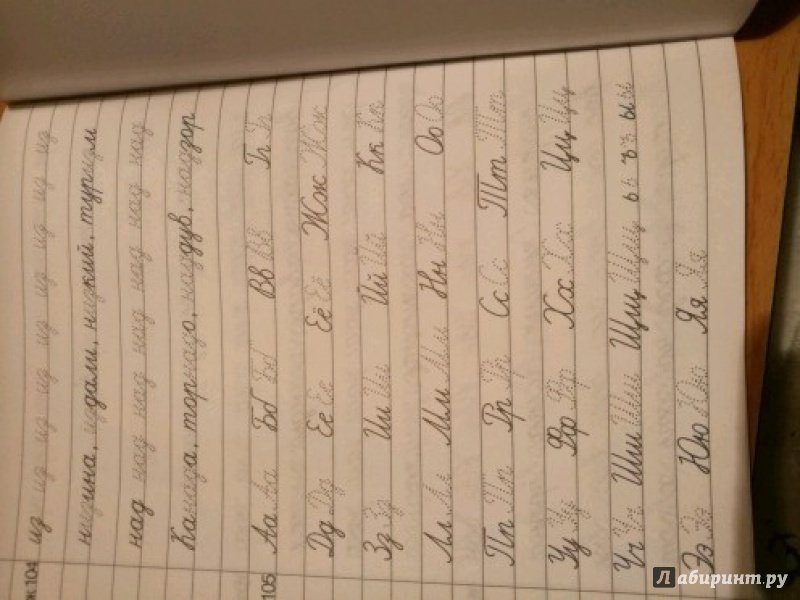 ж.104 из из из из из из из из
низина, издали, низкий, туризм
над над над над над над над
Канада, торнадо, наддув, надзор
105 Аа Аа Бб Бб Вв Вв Гг Гг
Дд Дд Ее Ее Ёё Ёё Жж Жж
Зз Зз Ии Ии Йй Йй Кк Кк
Лл Лл Мм Мм Нн Нн Оо Оо
Пп Пп Рр Рр Сс Сс Тт Тт
Уу Уу Фф Фф Хх Хх Цц Цц
Чч Чч Шш Шш Щщ Щщ ь ь ъ ъ ы ы
Ээ Ээ Юю Юю Яя Яя
Лабиринт.ру